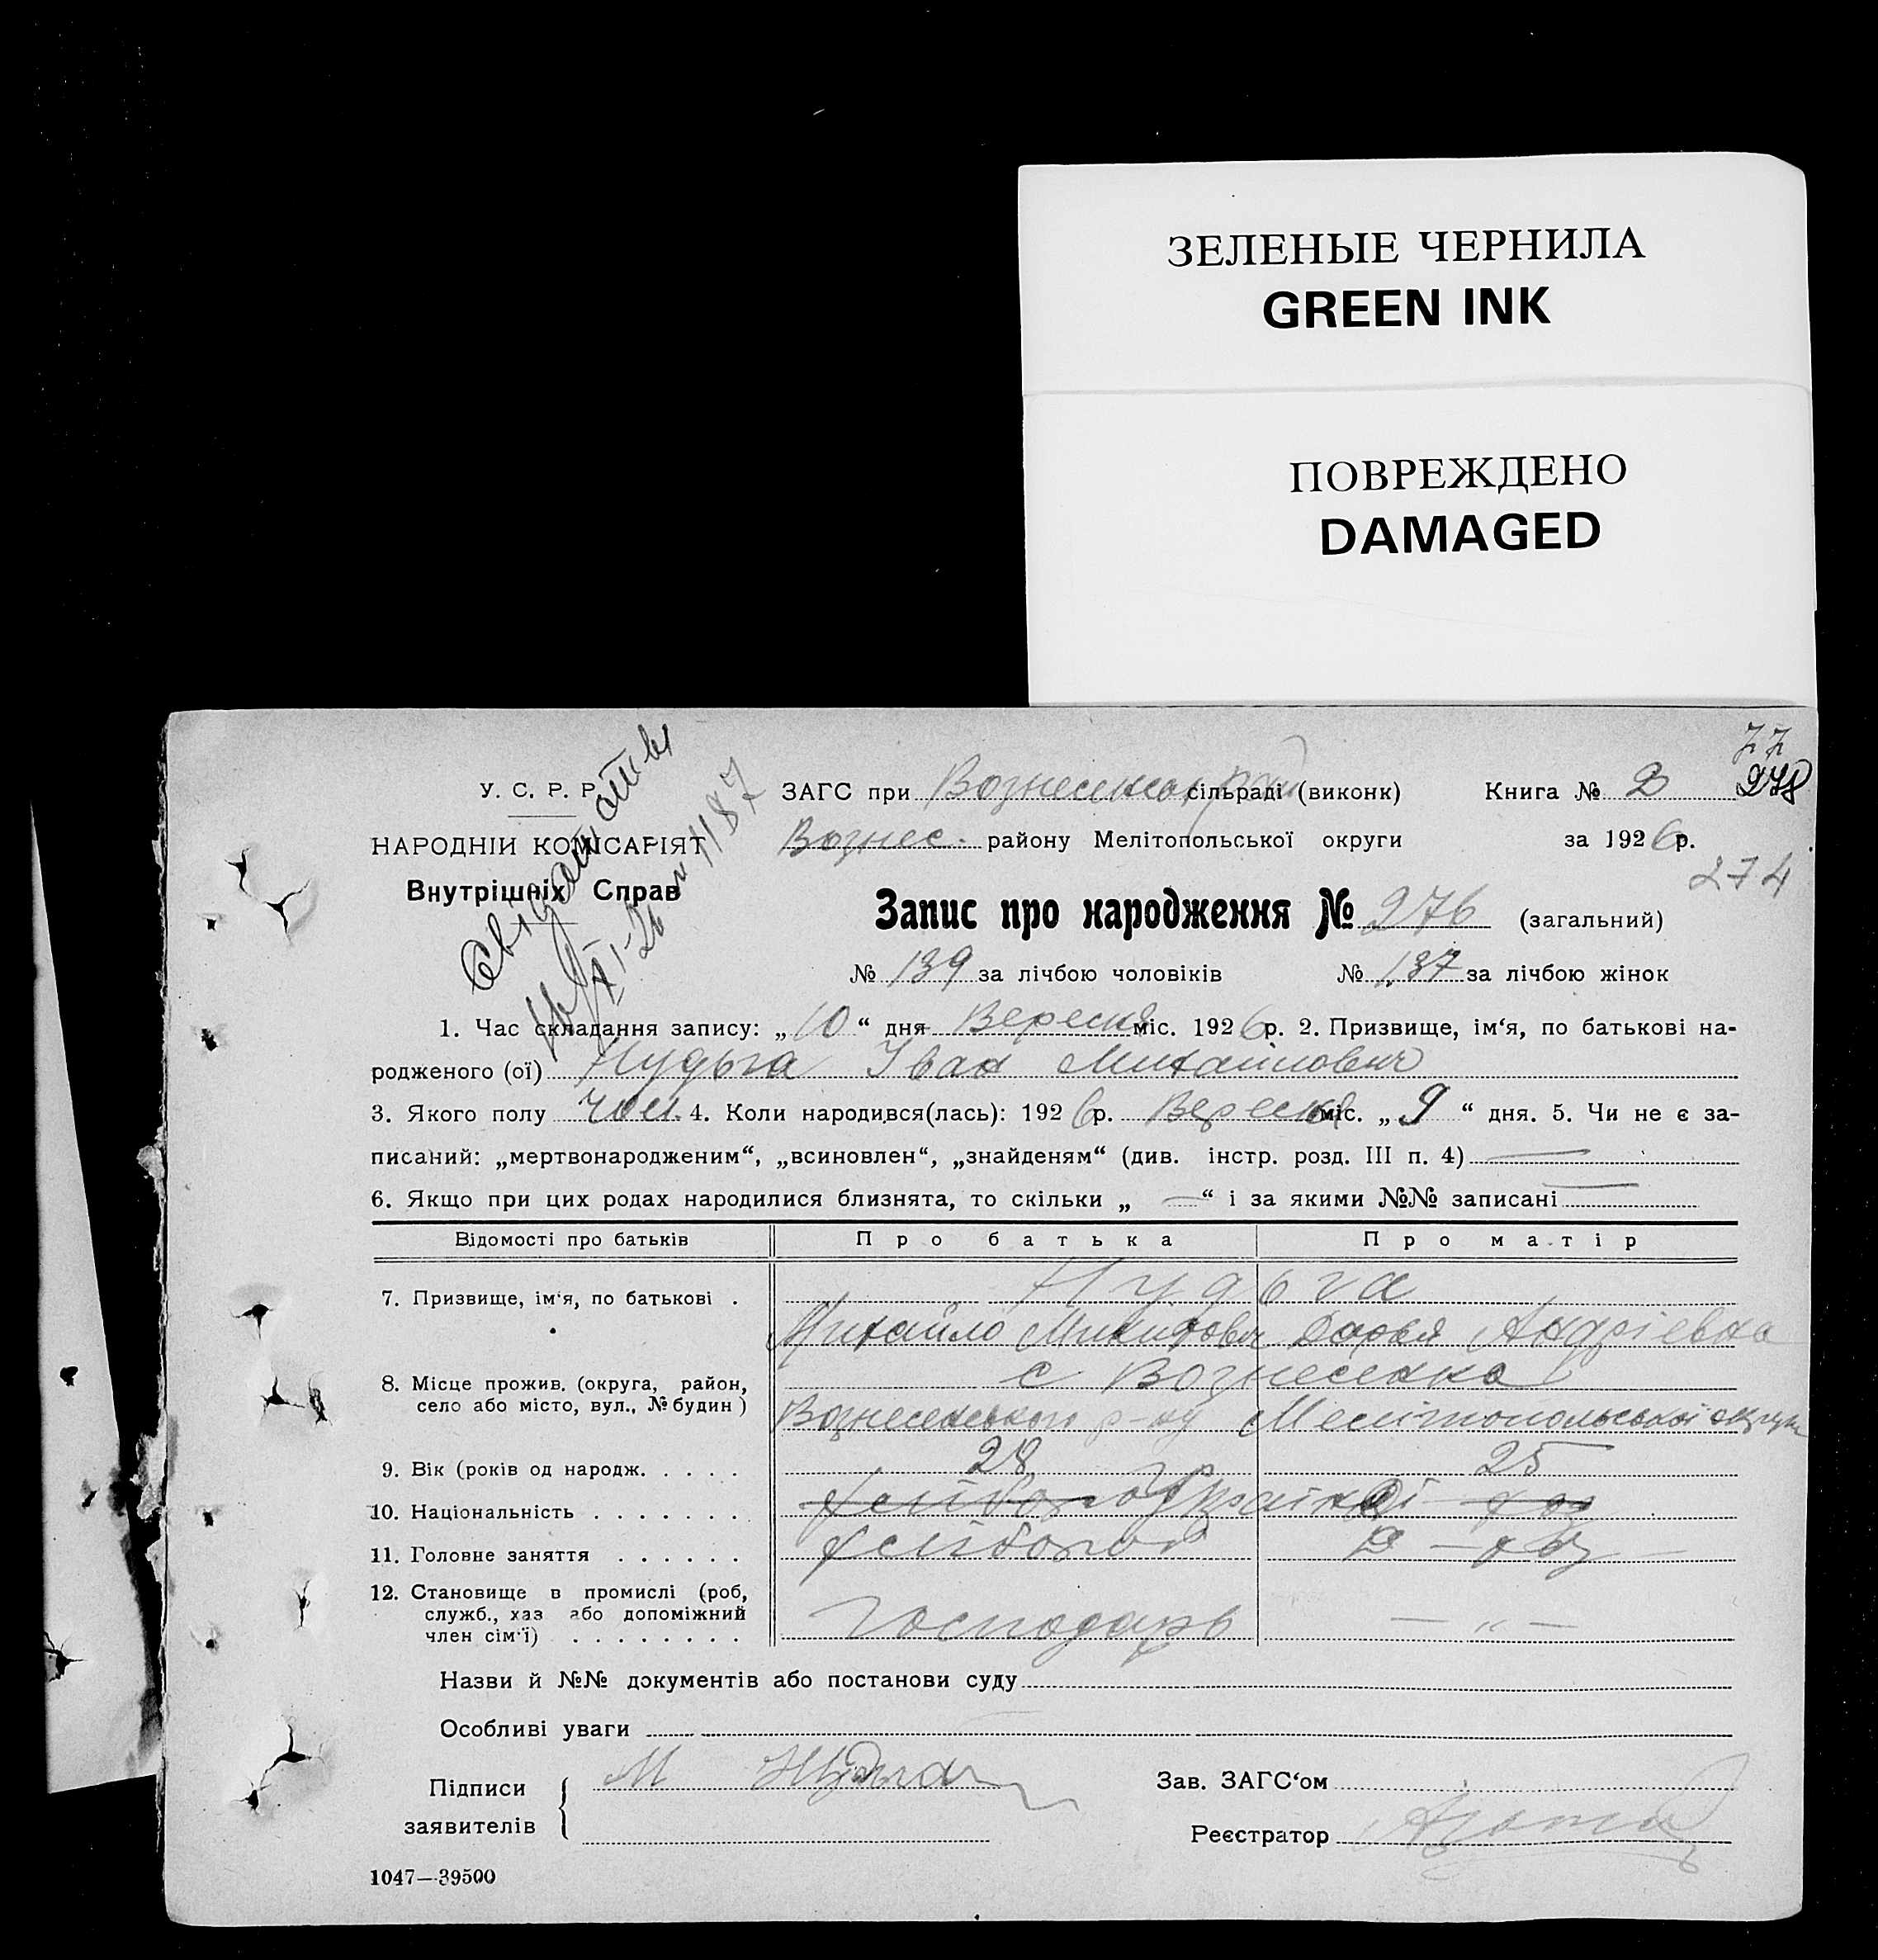 ЗЕЛЕНЫЕ ЧЕРНИЛА
GREEN INK
ПОВРЕЖДЕНО
DAMAGED
77
278
274
У. С. Р. Р.
НАРОДНІЙ КОМІСАРІЯТ
Внутрішніх Справ
№ 1187
ЗАГС при Вознесенск. рай сільраді (виконк) Книга № 2
Вознес. району Мелітопольської округи за 1926 р.
Запис про народження № 276 (загальний)
№ 139 за лічбою чоловіків № 137 за лічбою жінок
1. Час складання запису: „ 10 “ дня Вересня міс. 1926 р. 2. Призвище, ім‘я, по батькові на-
родженого (ої) Нудьга Іван Михайлович
3. Якого полу чол. 4. Коли народився(лась): 1926 р. Вересня міс. „ 9 “ дня. 5. Чи не є за-
писаний: „мертвонародженим“, „всиновлен“, „знайденям“ (див. інстр. розд. III п. 4) —
6. Якщо при цих родах народилися близнята, то скільки „ — “ і за якими №№ записані —
Відомості про батьків Про батька Про матір
7. Призвище, ім‘я, по батькові . Нудьга
Михайло Микитович Дарья Андрієвна
8. Місце прожив. (округа, район, с Вознесенка
село або місто, вул., № будин ) Вознесенського р-ну Мелітопольської округи
9. Вік (років од народж. . . . . 28 25
10. Національність . . . . . . . Хлібороб Українці
11. Головне заняття . . . . . . Хлібороб
12. Становище в промислі (роб,
служб., хаз або допоміжний Господарь — „ —
член сім‘ї) . . . . . . . .
Назви й №№ документів або постанови суду
Особливі уваги
Підписи М Нудьга Зав. ЗАГС‘ом
заявителів Реєстратор
1047—39500